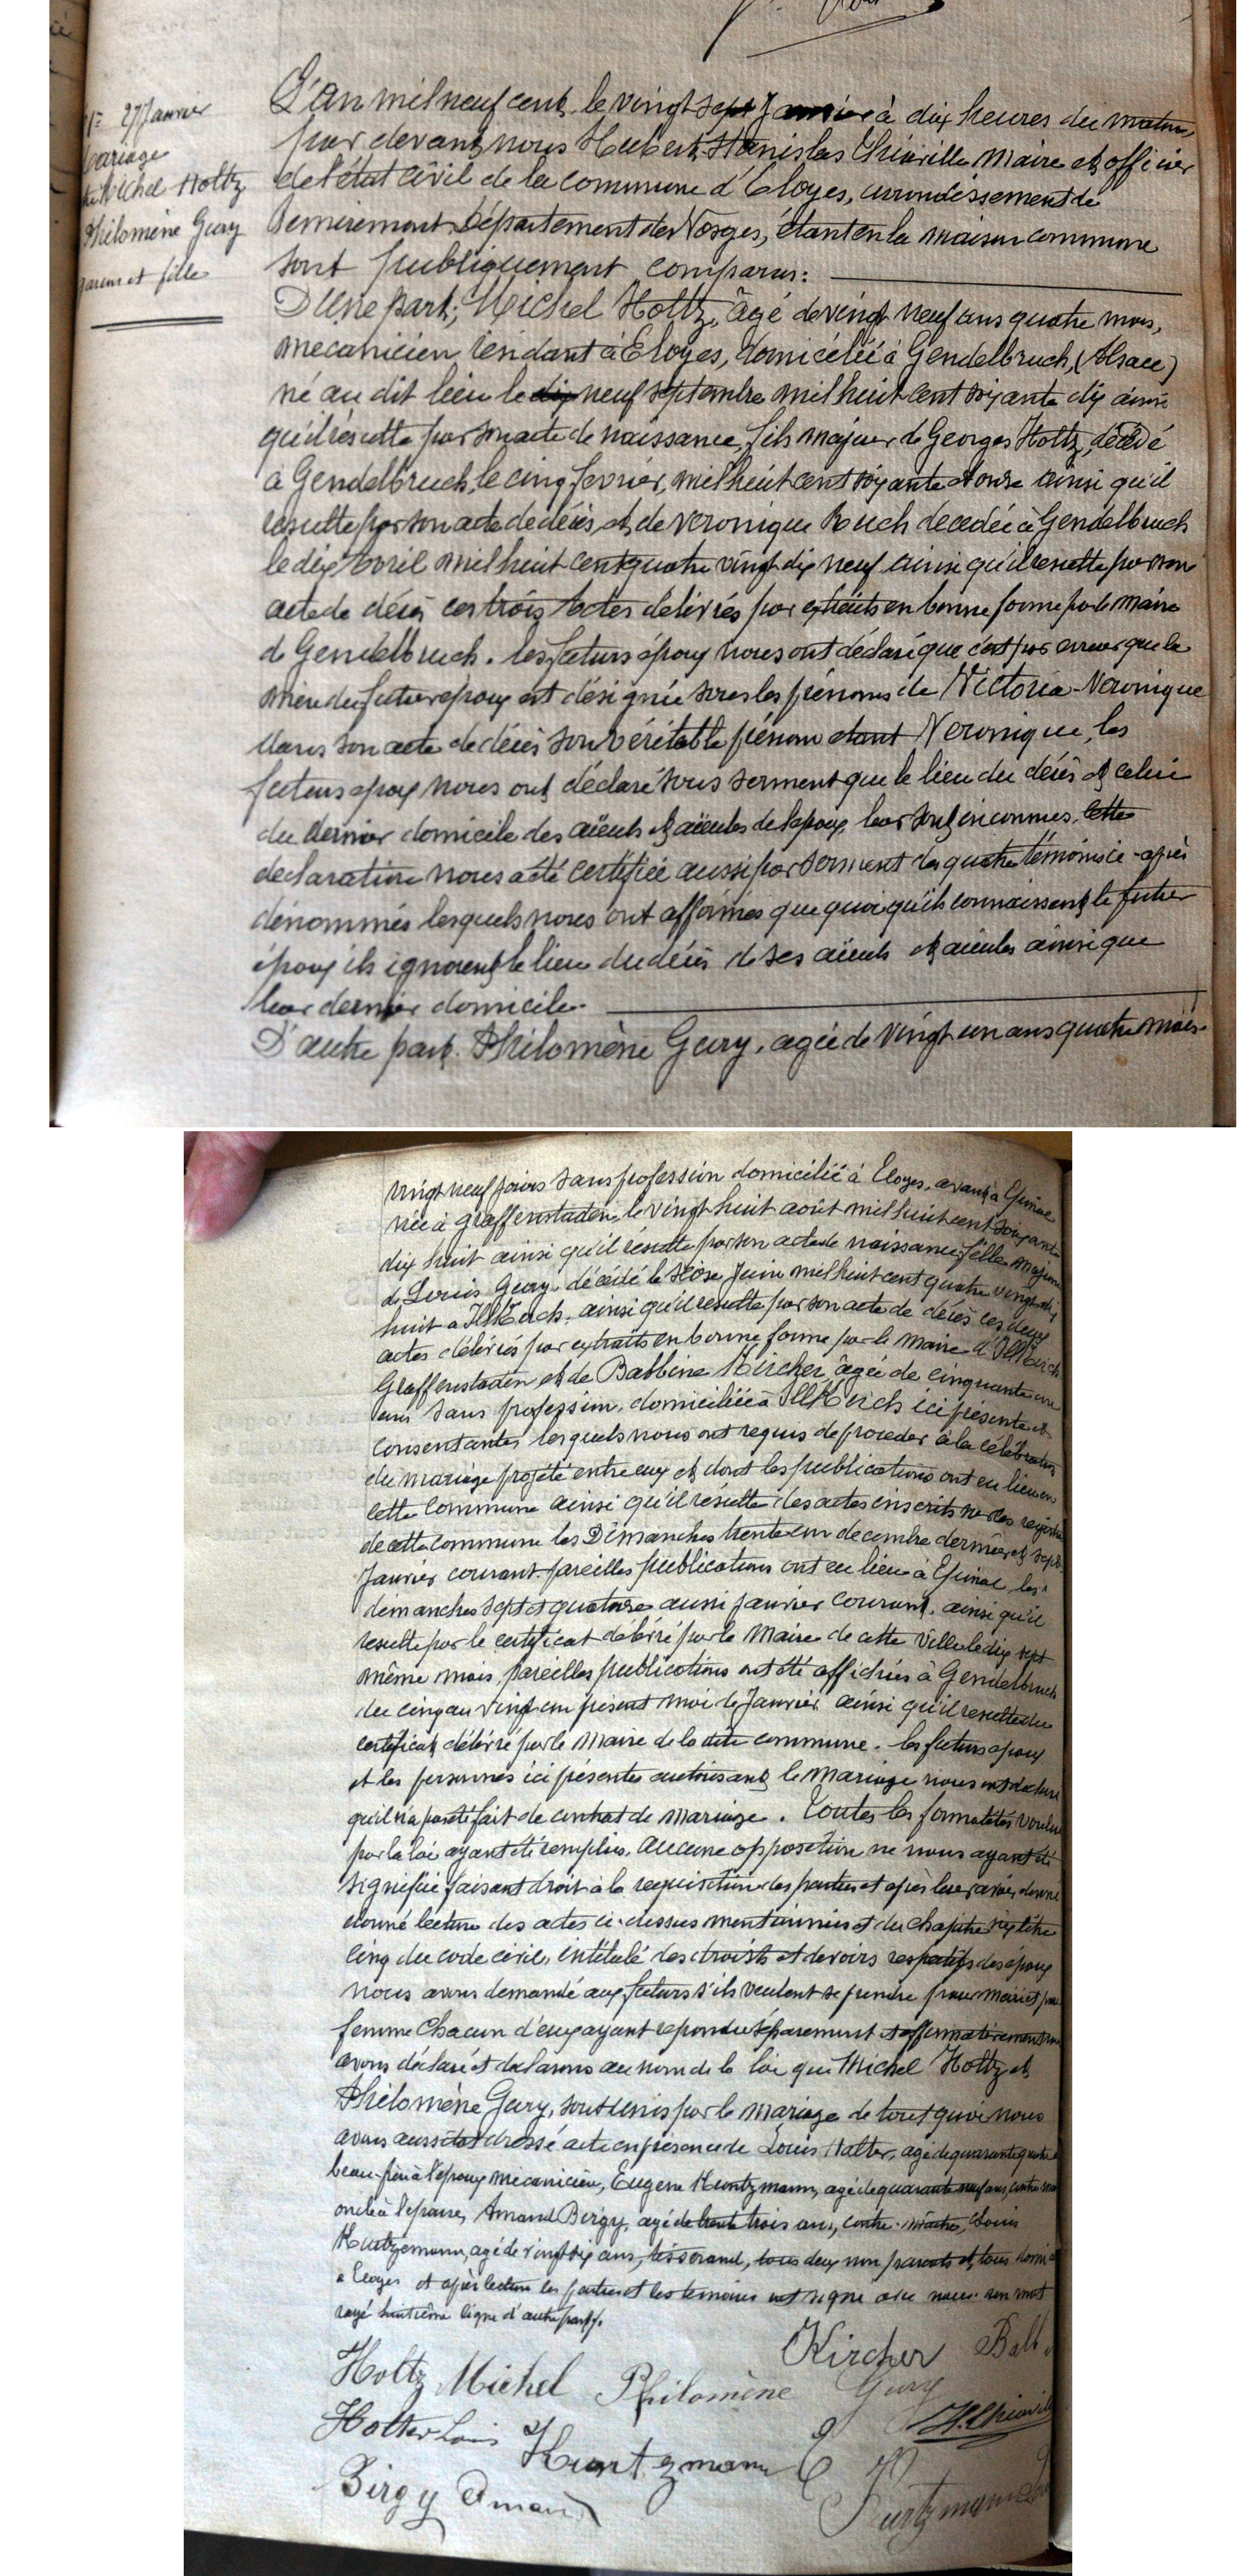 27 Janvier
Mariage
de Michel Holtz
Philomène Gury
garçon et fille
L'an mil neuf cent, le vingt sept Janvier à dix heures du matin,
par devant nous Hubert Stanislas Thiaville Maire et officier
de l'état civil de la commune d'Eloyes, arrondissement de
Remiremont Département des Vosges, étant en la maison commune
sont publiquement comparus:
D'une part; Michel Holtz, âgé de vingt neuf ans quatre mois,
mécanicien résidant à Eloyes, domicilié à Gendelbruch, (Alsace)
né au dit lieu le dix neuf septembre mil huit cent soixante dix ainsi
qu'il résulte par son acte de naissance, fils majeur de Georges Holtz, décédé
à Gendelbruch, le cinq février, mil huit cent soixante et onze ainsi qu'il
résulte par son acte de décès et de Veronique Ruch decedée à Gendelbruch
le dix Avril mil huit cent quatre vingt dix neuf ainsi qu'il resulte par son
acte de décès ces trois actes delivrés par extraits en bonne forme par le Maire
de Gendelbruch. les futurs époux nous ont déclaré que c'est par erreur que la
mère du futur époux est désignée sous les prénoms de Victoria-Veronique
dans son acte de décès son véritable prénom étant Veronique, les
futurs époux nous ont déclaré sous serment que le lieu du décès et celui
du dernier domicile des aïeuls et aïeules de l'époux, leur sont inconnus, cette
declaration nous a été certifiée aussi par serment des quatre témoins ci-après
dénommés lesquels nous ont affirmés que quoiqu'ils connaissent le futur
époux ils ignorent le lieu du décès de ses aïeuls et aïeules ainsi que
leur dernier domicile.
D'autre part. Philomène Gury, agée de vingt un ans quatre mois
vingt neuf jours sans profession domiciliée à Eloyes, avant à Epinal
née à Graffenstaden, le vingt huit août mil huit cent soixante
dix huit ainsi qu'il résulte par son acte de naissance, fille majeure
de Louis Gury, décédé le seize Juin mil huit cent quatre vingt dix
huit à Illkirch, ainsi qu'il resulte par son acte de décès ces deux
actes délivrés par extraits en bonne forme par le Maire d'Illkirch
Graffenstaden et de Babbine Kircher, âgée de cinquante un
ans sans profession, domiciliée à Illkirch ici présente et
consentante, lesquels nous ont requis de proceder à la célébration
du mariage projeté entre eux et dont les publications ont eu lieu en
cette commune ainsi qu'il résulte des actes inscrits sur les registres
de cette commune les Dimanches trente un decembre dernier et sept
Janvier courant pareilles publications ont eu lieu à Epinal, les
dimanches sept et quatorze aussi Janvier courant, ainsi qu'il
resulte par le certificat délivré par le Maire de cette Ville le dix sept
même mois, pareilles publications ont été affichées à Gendelbruch
du cinq au vingt un présent moi de Janvier ainsi qu'il resulte du
certificat délivré par le Maire de la dite commune. les futurs époux
et les personnes ici présentes autorisant le mariage nous ont déclaré
qu'il n'a pas été fait de contrat de mariage. Toutes les formalités voulues
par la loi ayant été remplies, aucune opposition ne nous ayant été
signifiée faisant droit à la requisition des parties et après leur avoir donné
donné lecture des actes ci-dessus mentionnés et du chapitre six titre
cinq du code civil, intitulé des droits et devoirs respectifs des époux
nous avons demandé aux futurs s'ils veulent se prendre pour mari et pour
femme chacun d'eux ayant repondu séparement et affirmativement nous
avons déclaré et declarons au nom de la loi que Michel Holtz et
Philomène Gury, sont unis par le mariage de tout quoi nous
avons aussitot dressé acte en présence de Louis Halter, agé de quarante quatre
beau-frère à l'époux mécanicien, Eugene Kuntzmann, agé de quarante neuf ans, contre maître
oncle à l'épouse, Amand Birgy, agé de trente trois ans, contre-maître, Louis
Kuntzemann, agé de vingt six ans, tisserand, tous deux non parents et tous domiciliés
à Eloyes et après lecture les parties et les temoins ont signé avec nous. un mot
rayé huitième ligne d'autre part.
Kircher Balb
Holtz Michel Philomène Gury
H. Thiaville
Holter Louis Kuntzmann E
Birgy Amand Kurtzmann